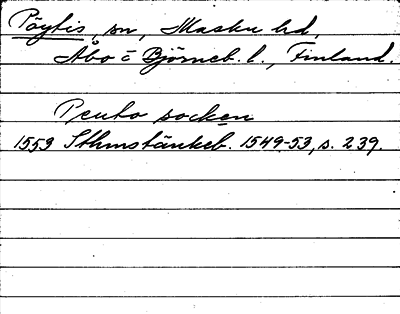 Pöytis, sn, Masku hd,
Åbo o Björneb. l., Finland.
socken
1553 Sthmstänkeb. 1549-53, s. 239.